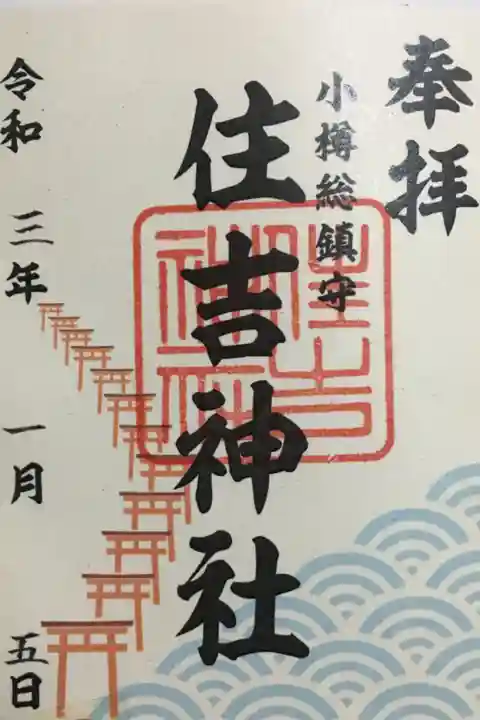 奉拝
小樽総鎮守
住吉神社
住吉
神社
令和 三年 一月 五日